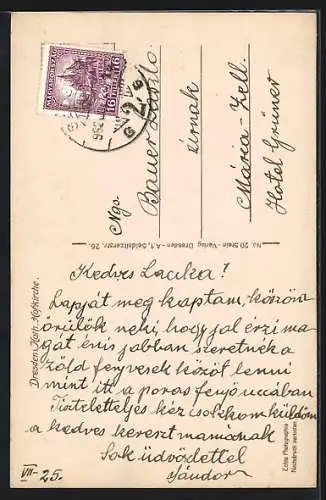 MAGYARORSZÁG
16 FILLÉR 16
Ngs.
Bauer László
úrnak
Mária-Zell.
Hotel Grüner
No. 20 Stein-Verlag Dresden-A.1, Seidnitzerstr. 26.
Dresden. Kath. Hofkirche.
Kedves Lacika!
Lapját meg kaptam, köszönö
örülök neki, hogy jol érzi ma
gát én is jobban szeretnék a
zöld fenyvesek közöt lenni
mint it a poros fenyő uccában
Tisteletteljes kéz csolkom küldöm
a kedves kereszt mamának
Sok üdvözlettel
Sándor
VII-25.
Echte Photographie
Nachdruck verboten